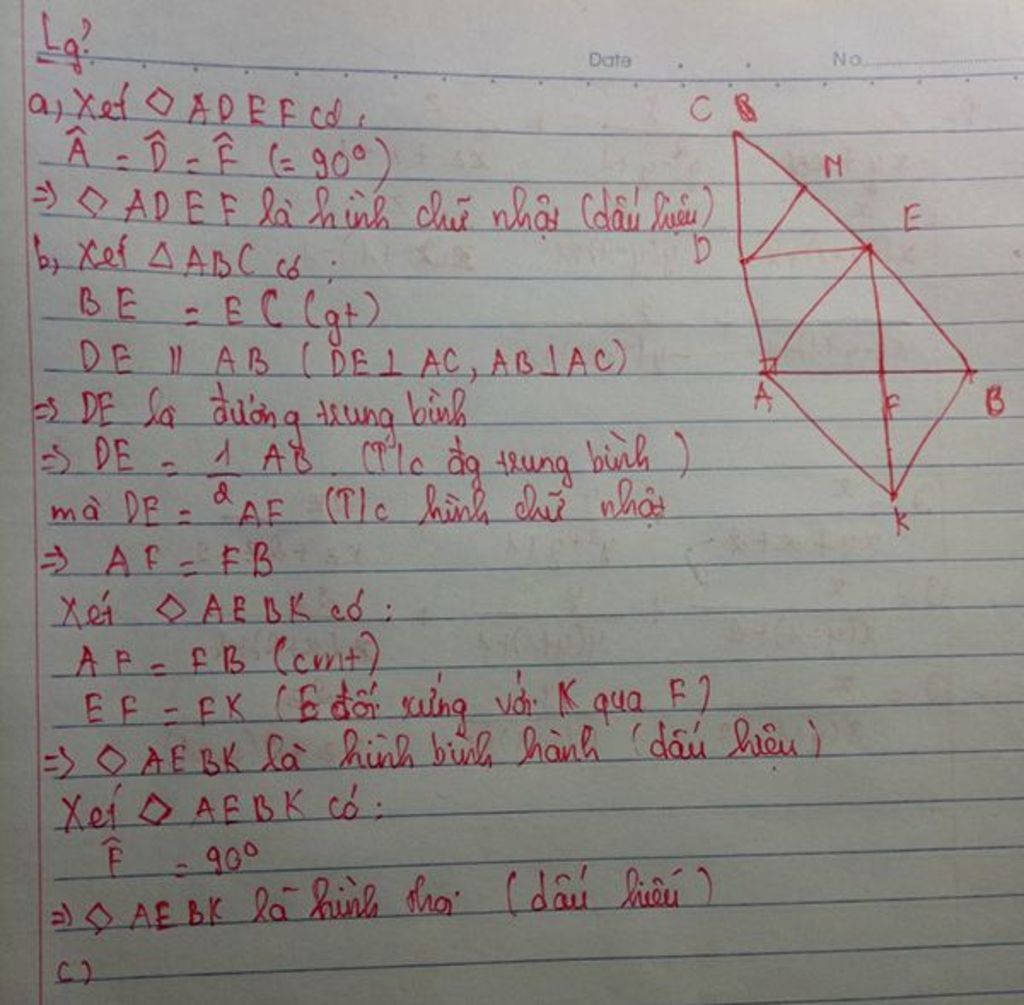 Lg?
Date
No
a, Xét ◇ ADEF có:
Â = D̂ = F̂ (= 90°)
=> ◇ ADEF là hình chữ nhật (dấu hiệu)
b, Xét △ABC có:
BE = EC (gt)
DE || AB (DE ⊥ AC, AB ⊥ AC)
=> DE là đường trung bình
=> DE = 1/2 AB (T/c đg trung bình)
mà DE = AF (T/c hình chữ nhật
=> AF = FB
Xét ◇ AEBK có:
AF = FB (cmt)
EF = FK (E đối xứng với K qua F)
=> ◇ AEBK là hình bình hành (dấu hiệu)
Xét ◇ AEBK có:
F̂ = 90°
=> ◇ AEBK là hình thoi (dấu hiếu)
c)
C
M
E
D
A
F
B
K